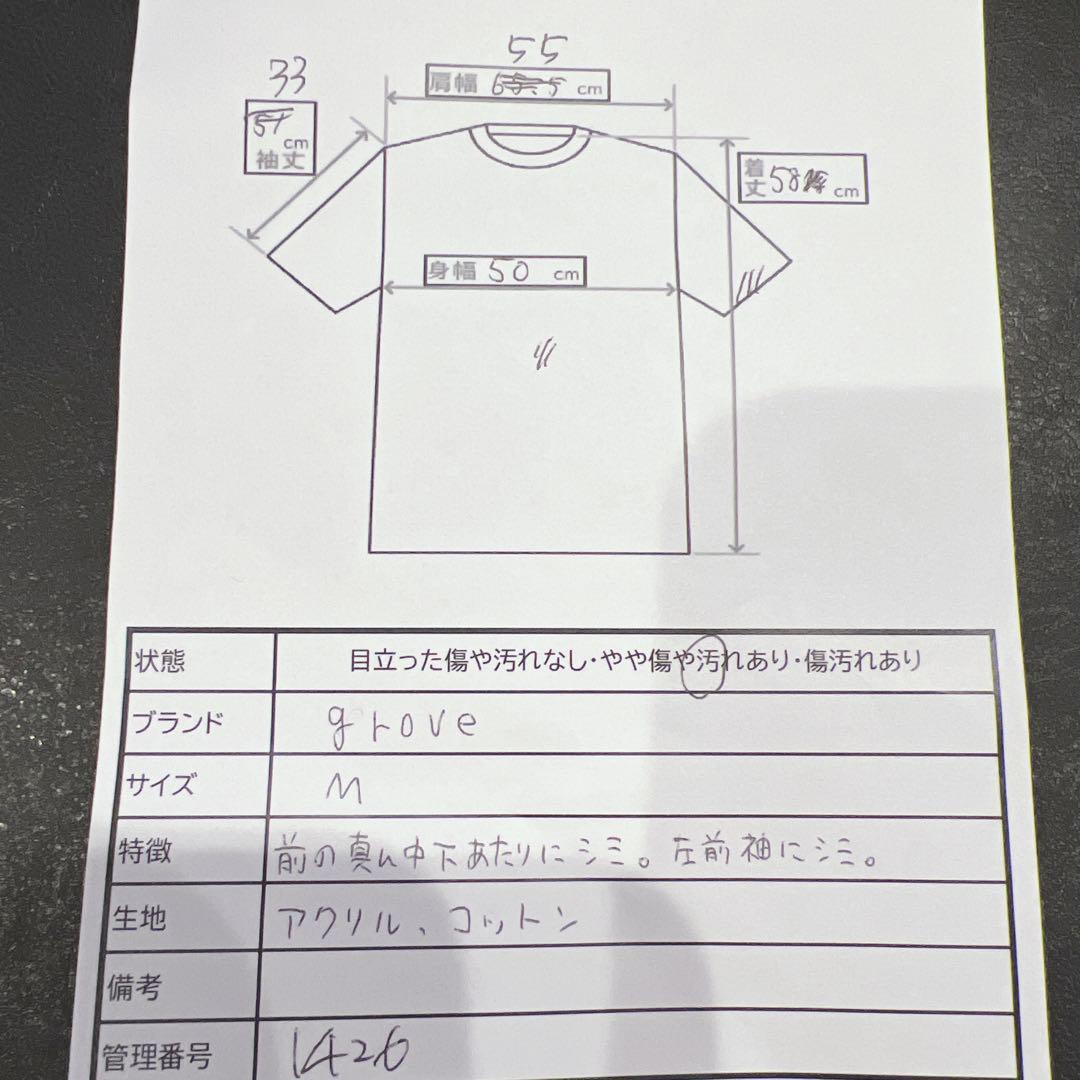 55
33
肩幅 cm
cm
袖丈
着丈 58 cm
身幅 50 cm
状態 目立った傷や汚れなし・やや傷や汚れあり・傷汚れあり
ブランド grove
サイズ M
特徴 前の真ん中下あたりにシミ。左前袖にシミ。
生地 アクリル、コットン
備考
管理番号 1426